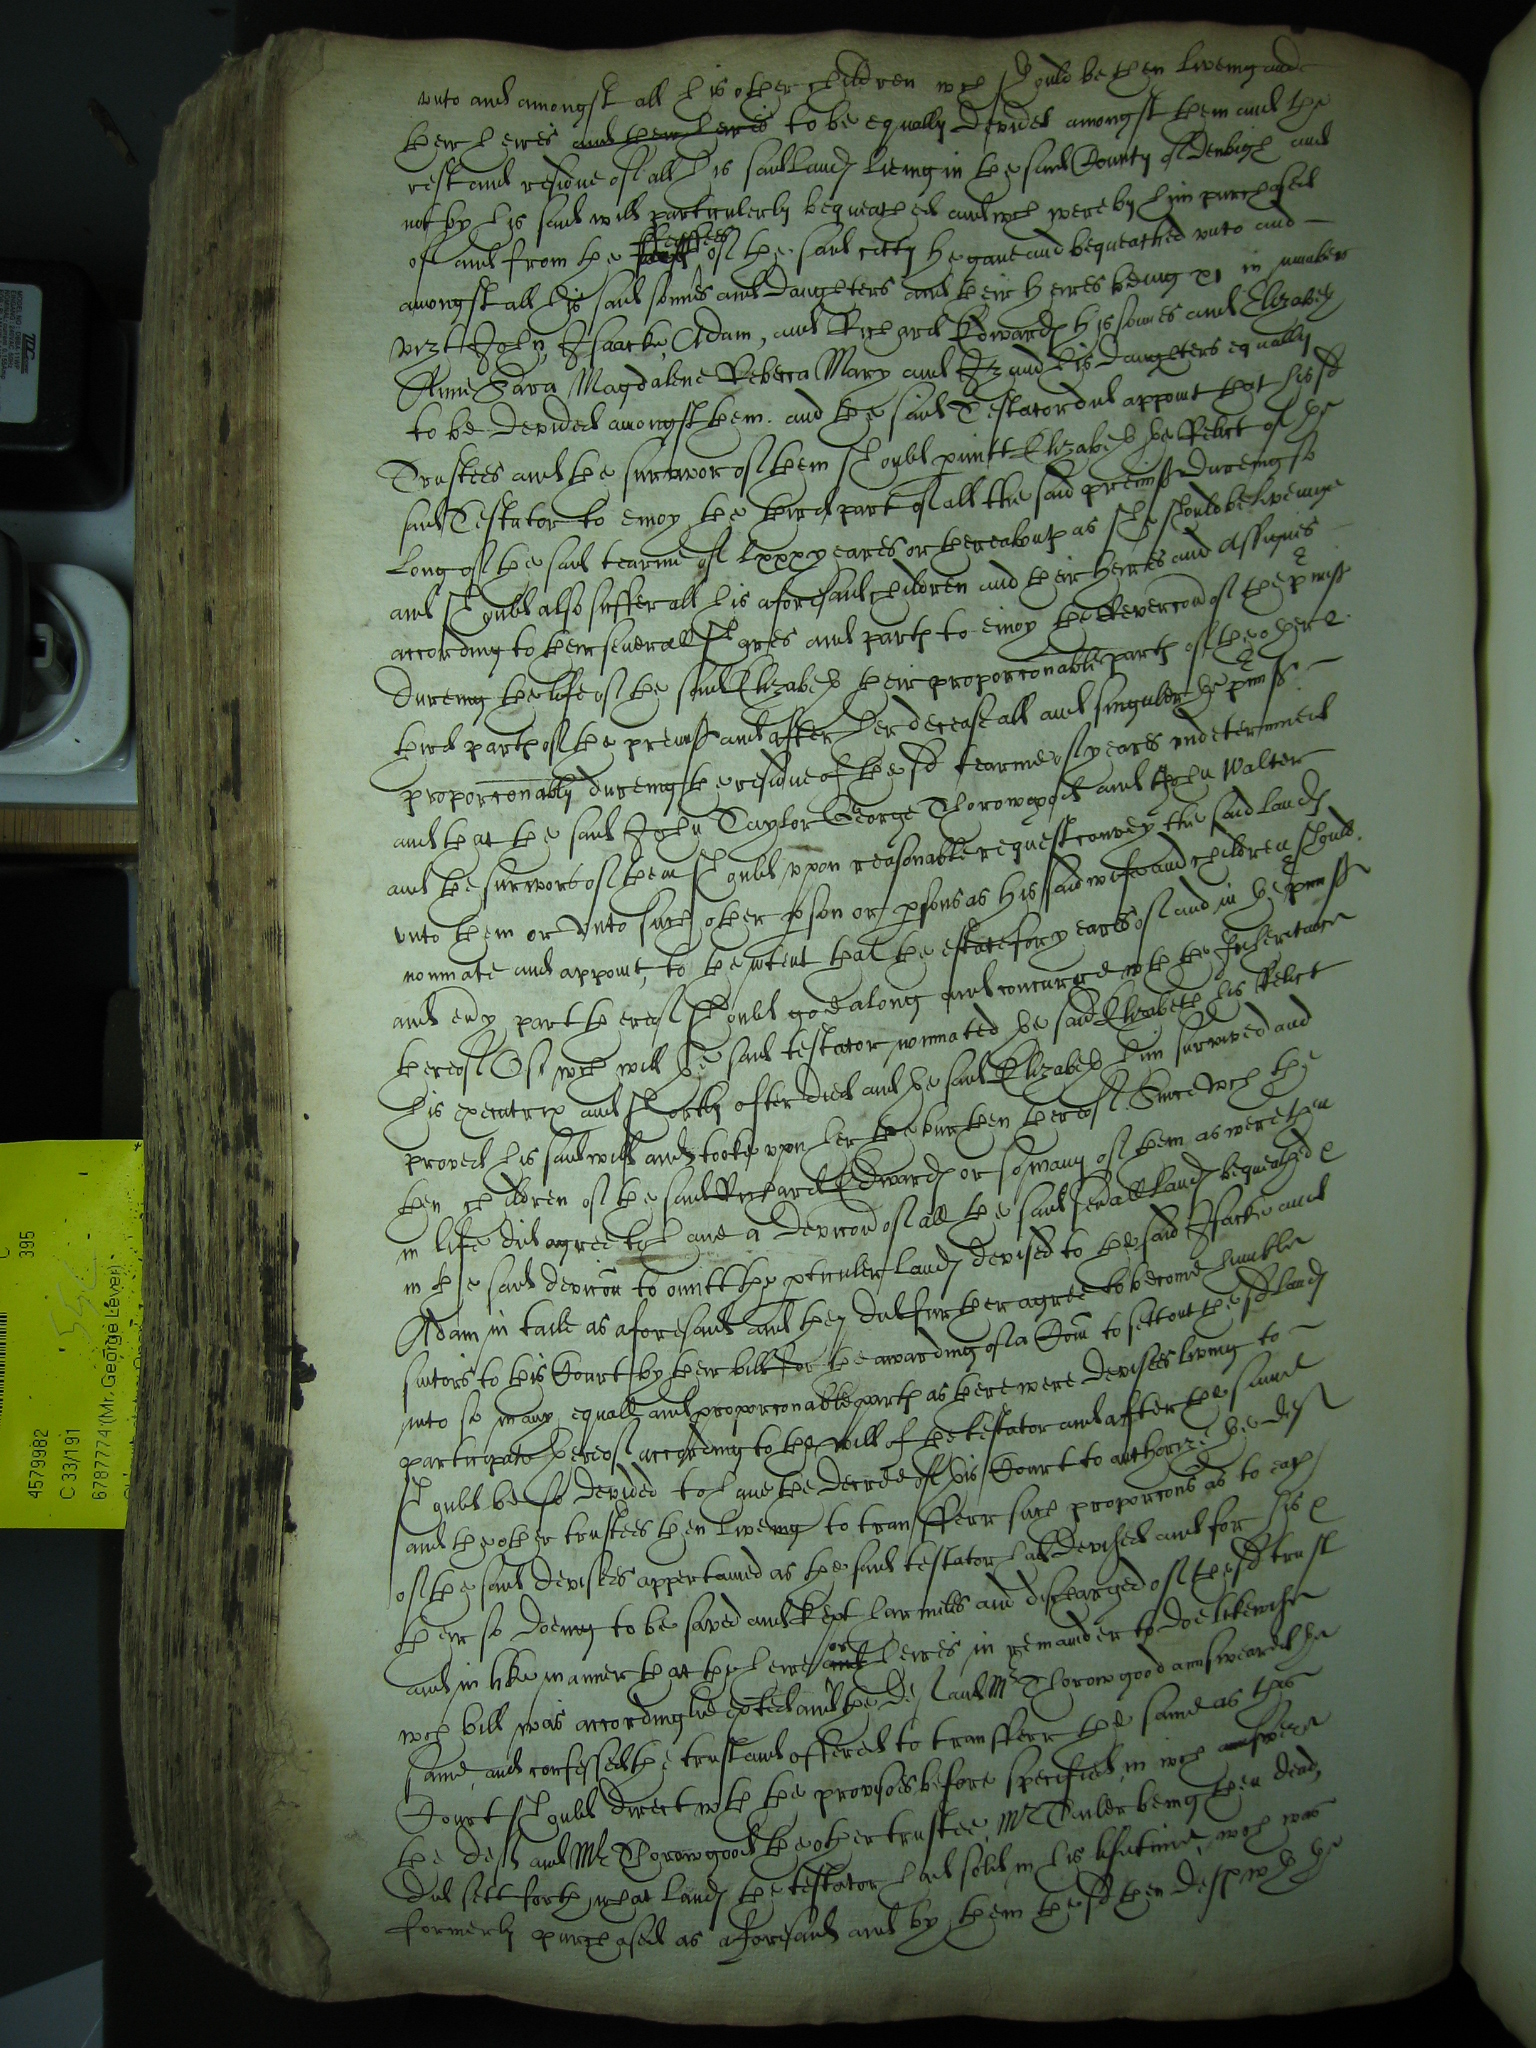 vnto and amongst all his other children wch should be then liveing and
their heires and their heires to be equally devided amongst them and the
rest and residue of all his said Land lieing in the said County of Denbigh and
not by his said will particulerly bequeathed and wch were by him purchased
of and from the of the said citty he gave and bequeathed vnto and
amongst all his said sonnes and Daughters and their heires being xi in number
vizt John, Isaacke, Adam, and Richard Edward his sonnes and Elizabeth
Anne Sara Magdalene Rebecca Mary and his Daughters equally
to be devided amongst them. and the said Testator did appoint that his sd
Trustees and the survivor of them should pmitt Elizabeth the Relict of the
said Testator to enioy the third part of all the said premiss dureing so
long of the said tearme of lxxx yeares or thereabouts as she should be liveinge
and should also suffer all his aforesaid children and their heires and Assignes
according to their severall shares and parts to enioy the Revercon of the pmiss
dureing the life of the said Elizabeth their proporconable parts of the other 2
third parts of the premiss and after her decease all and singuler the pmiss
proporconably dureing the residue of the sd tearme of yeares vndetermined
and that the said John Taylor George Thorowgood and John Walter
and the survivors of them should vpon reasonable request convey the said Lands
vnto them or vnto such other pson or psons as his said wife and children should
nominate and appoint, to the intent that the estate for yeares of and in the pmiss
and evy part thereof should goe along and concurre wth the Inheritance
thereof Of wch will the said testator nominated the said Elizabeth his Relict
his executrix and shortly after died and the said Elizabeth him survived and
proved his said will and tooke vpon her the burthen thereof. Since wch the
then children of the said Richard Edwards or so many of them as were then
in life did agree to have a devicon of all the said sevall Lands bequeathed
in the said devicon to omitt the pticuler Lands devised to the said Isacke and
Adam in taile as aforesaid and they did further agree to become humble
suitors to this Court by their bill for the awarding of a Com to sett out the sd Lands
into so many equall and proporconable parts as there were devisees living to
participate thereof according to the will of the testator and after the same
should be so devided to have the decree of this Court to authorize the deft
and the other trustees then liveing to transfferr such proporcons as to each
of the said devisees appertained as the said testator had devised and for his
their so doeing to be saved and kept harmeles and discharged of the sd trust
and in like manner that the heire and or heires in remainder to doe likewise
wch bill was accordinglie exhited and the deft and Mr Thorowgood annsweared the
same, and confessed the trust and offered to transferr the same as this
Court should direct wth the provisoes before specified, in wch answere
the deft and Mr Thorowgood the other trustee, Mr being then dead,
did sett forth what Lands the testator had sold in his lifetime, wch was
formerly purchased as aforesaid and by them the sd then
4579982
C 33/191
6787774 (Mr. George Lever)
395